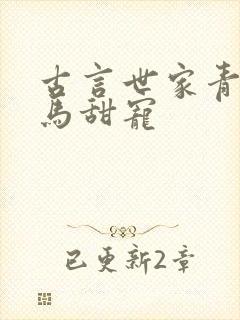 古言世家青
馬甜寵
已更新2章